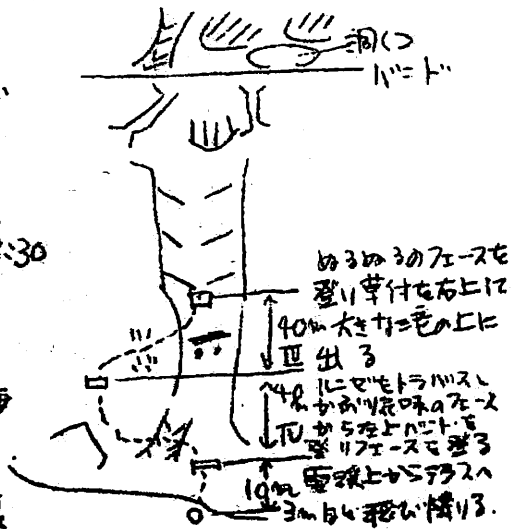 洞くつ
バンド
:30
ぬるぬるのフェースを
登り草付を右上して
40m 大きな滝の上に
Ⅲ 出る
ルンゼをトラバースし
かぶり気味のフェース
Ⅳ から左上バンドを
登りフェースを登る
10m 雪渓上からテラスへ
3m 飛び降りる.